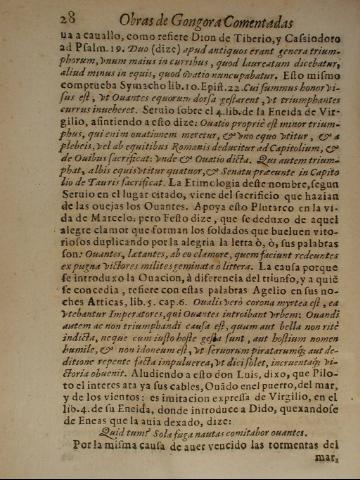 28 Obras de Gongora Comentadas
ua a cauallo, como refiere Dion de Tiberio, y Cassiodoro
ad Psalm. 19. Duo (dize) apud antiquos erant genera trium-
phorum, vnum maius in curribus, quod laureatum dicebatur,
aliud minus in equis, quod ovatio nuncupabatur. Esto mismo
comprueba Symacho lib. 10. Epist. 22. Cui summus honor vi-
sus est, vt Ouantes equorum dorsa gestarent, vt triumphantes
currus inueherent. Seruio sobre el 4. lib. de la Eneida de Vir-
gilio, assintiendo a esto dize: Ouatio propriè est minor trium-
phus, qui enim ouationem meretur, & vno equo vtitur, & a
plebeis, vel ab equitibus Romanis deducitur ad Capitolium, &
de Ouibus sacrificat: vnde & Ouatio dicta. Qui autem trium-
phat, albis equis vtitur quatuor, & Senatu præeunte in Capito
lio de Tauris sacrificat. La Etimologia deste nombre, segun
Seruio en el lugar citado, viene del sacrificio que hazian
de las ouejas los Ouantes. Apoya esto Plutarco en la vi-
da de Marcelo: pero Festo dize, que se deduxo de aquel
alegre clamor que forman los soldados que bueluen vito-
riosos duplicando por la alegria la letra ò, ò, sus palabras
son: Ouantes, lætantes, ab eo clamore, quem faciunt redeuntes
ex pugna victores milites geminata ò littera. La causa porque
se introduxo la Ouacion, à diferencia del triunfo, y a quiẽ
se concedia, refiere con estas palabras Agelio en sus no-
ches Atticas, lib. 5. cap. 6. Oualis verò corona myrtea est, ea
vtebantur Imperatores, qui Ouantes introibant vrbem: Ouandi
autem ac non triumphandi causa est, quum aut bella non ritè
indicta, neque cum iusto hoste gesta sunt, aut hostium nomen
humile, & non idoneum est, vt seruorum piratarumq; aut de-
ditione repente facta impuluerea, vt dici solet, incruentaq; vi-
ctoria obuenit. Aludiendo a esto don Luis, dixo, que Pilo-
to el interes ata ya sus cables, Ouãdo en el puerto, del mar,
y de los vientos: es imitacion expressa de Virgilio, en el
lib. 4. de su Eneida, donde introduce a Dido, quexandose
de Eneas que la auia dexado, dize:
Quid tum? Sola fuga nautas comitabor ouantes.
Por la misma causa de auer vencido las tormentas del
mar,